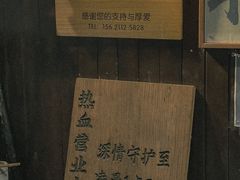 感谢您的支持与厚爱
TEL: 156 2112 5828
热血营业
深情守护至